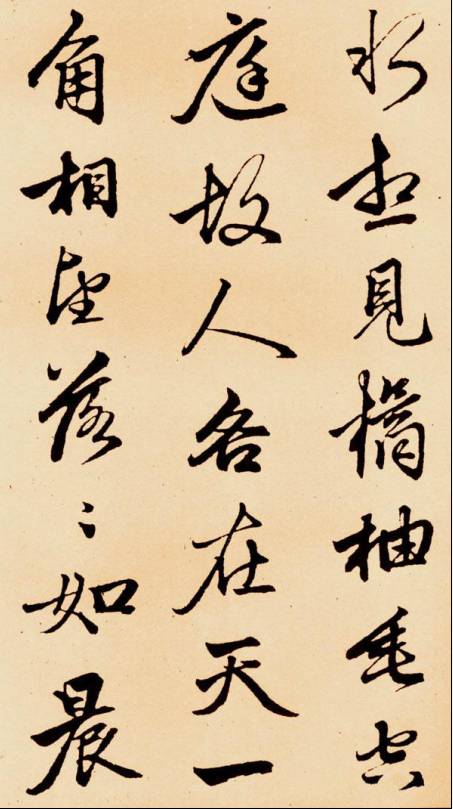 水想見橘柚垂空
庭故人各在天一
角相望落〻如晨